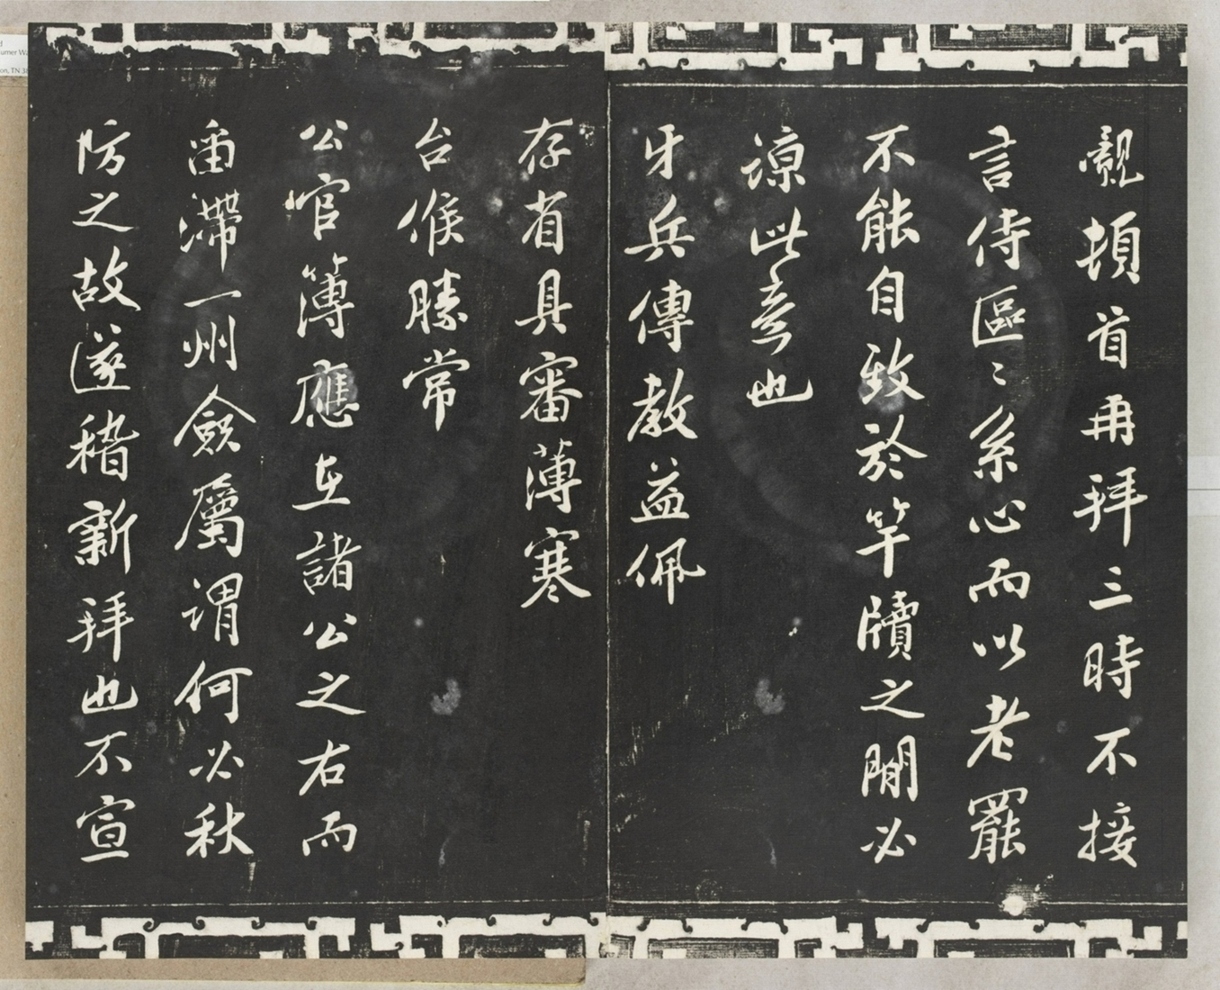 觏頓首再拜三時不接
言侍區〻系心而以老罷
不能自致於竿牘之間必
諒此意也
牙兵傳教益佩
存省具審薄寒
台候勝常
公官簿應在諸公之右而
留滯一州僉屬謂何必秋
防之故遂稽新拜也不宣